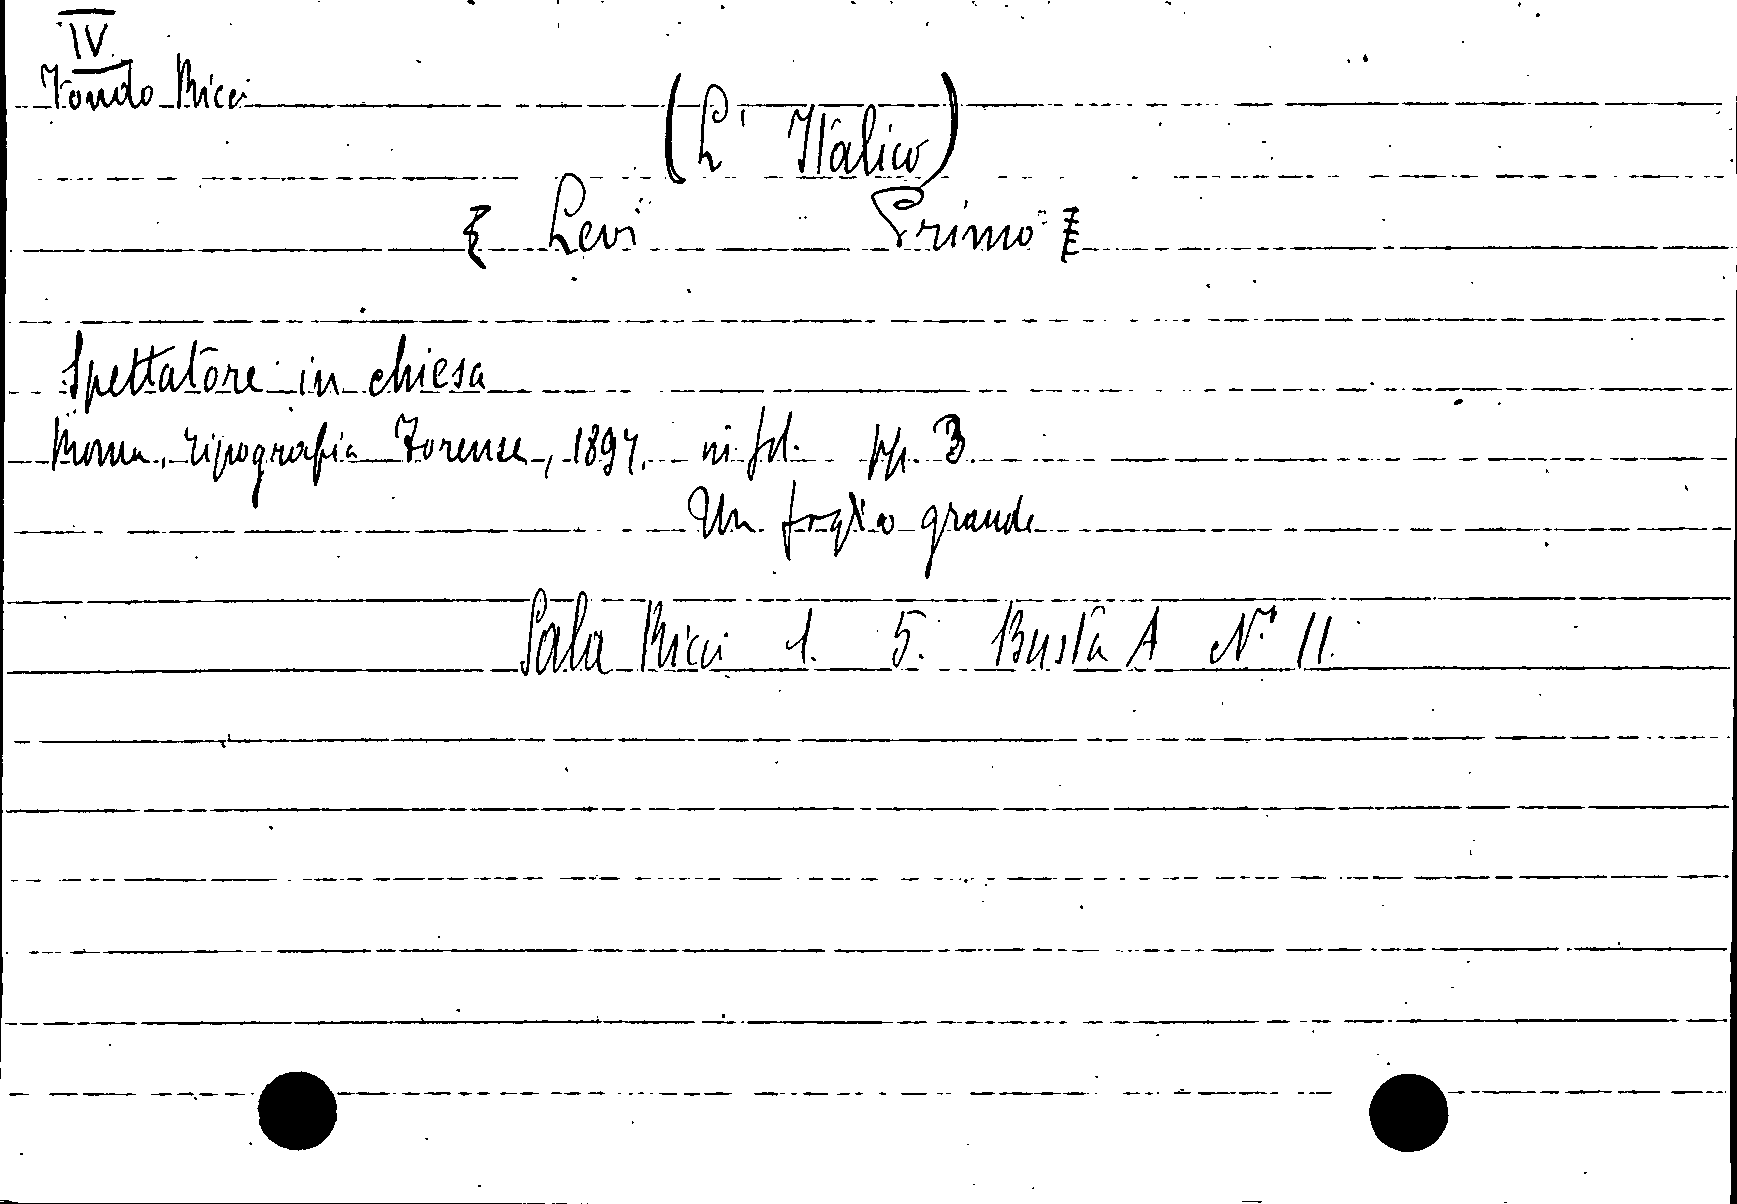 IV
Fondo Ricci
(L' Italico)
[ Levi Primo ]
Spettatore in chiesa
Roma, tipografia Forense, 1897. in fol. pp. 3.
Un foglio grande
Sala Ricci 1. 5. Busta A N.º 11.